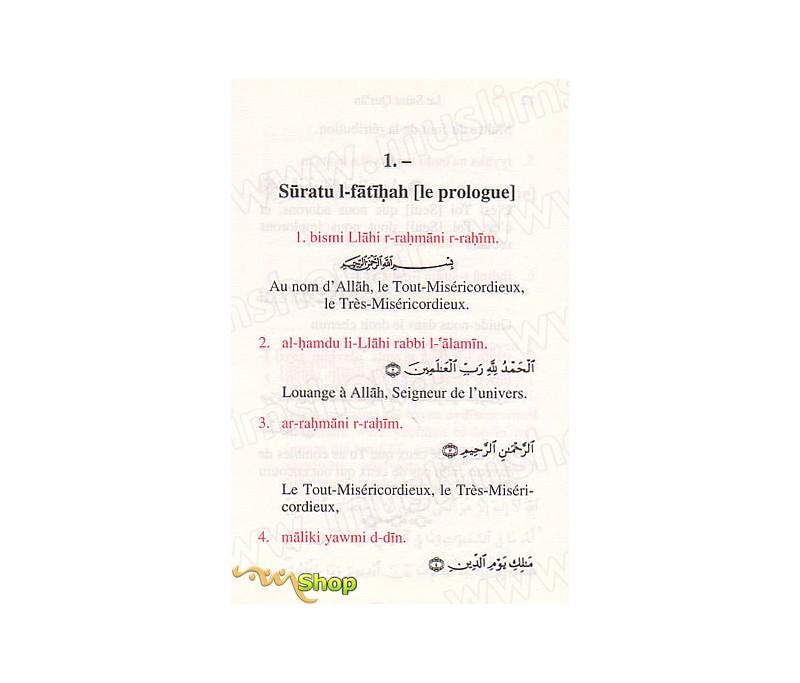 1. –
Sūratu l-fātīḥah [le prologue]
1. bismi Llāhi r-raḥmāni r-raḥīm.
بِسْمِ اللَّهِ الرَّحْمَٰنِ الرَّحِيمِ
Au nom d’Allāh, le Tout-Miséricordieux,
le Très-Miséricordieux.
2. al-ḥamdu li-Llāhi rabbi l-ʿālamīn.
الْحَمْدُ لِلَّهِ رَبِّ الْعَالَمِينَ ٢
Louange à Allāh, Seigneur de l’univers.
3. ar-raḥmāni r-raḥīm.
الرَّحْمَٰنِ الرَّحِيمِ ٣
Le Tout-Miséricordieux, le Très-Miséri-
cordieux,
4. māliki yawmi d-dīn.
مَالِكِ يَوْمِ الدِّينِ ٤
Shop